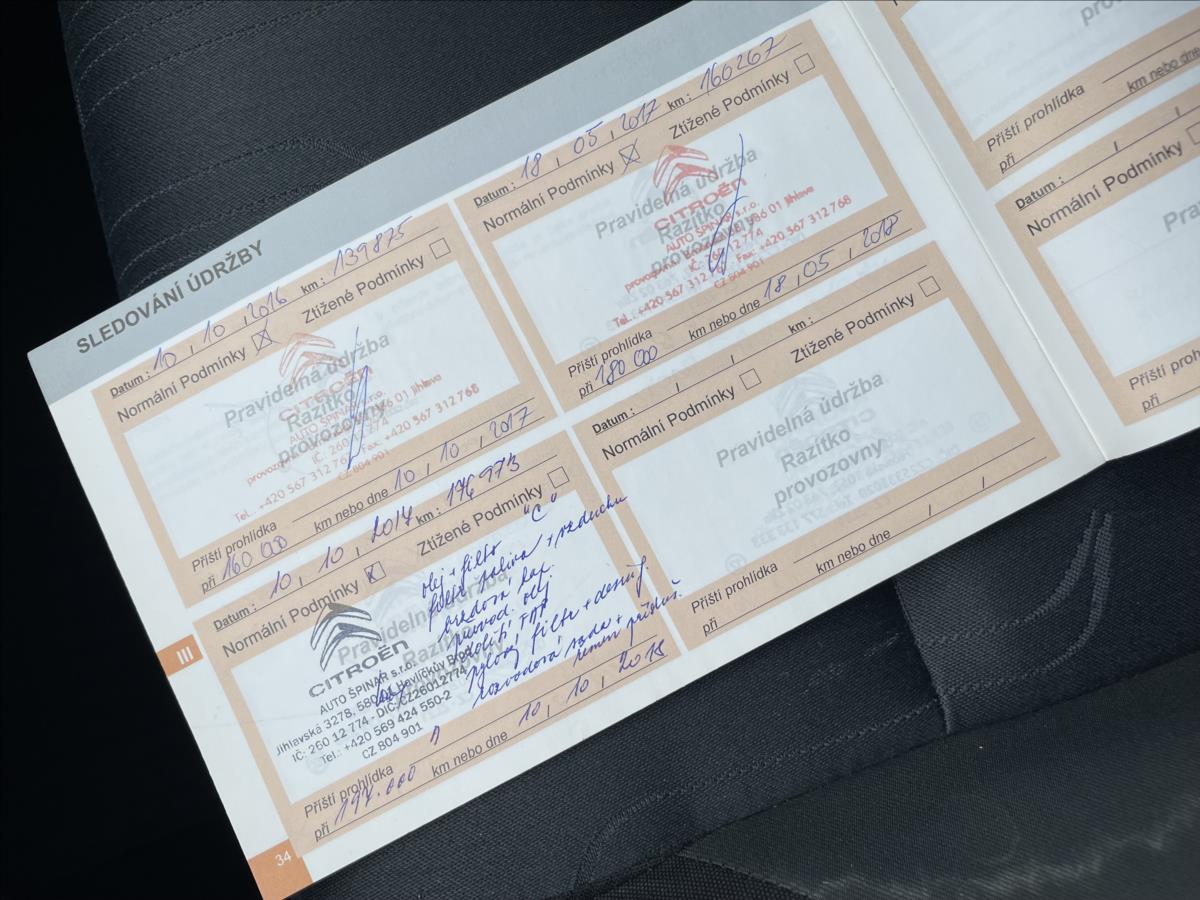 SLEDOVÁNÍ ÚDRŽBY
Datum : 10 , 10 , 2016 km : 139875
Normální Podmínky ☒ Ztížené Podmínky ☐
Pravidelná údržba
Razítko
provozovny
CITROËN
AUTO ŠPINAR s.r.o.
586 01 Jihlava
Tel.: +420 567 312 76 Fax: +420 567 312 768
CZ 804 901
Příští prohlídka
při 160 000 km nebo dne 10 , 10 , 2017
Datum : 18 , 05 , 2017 km : 160267
Normální Podmínky ☒ Ztížené Podmínky ☐
Pravidelná údržba
Razítko
provozovny
CITROËN
AUTO ŠPINAR s.r.o.
586 01 Jihlava
Tel.: +420 567 312 Fax: +420 567 312 768
CZ 804 901
Příští prohlídka
při 180 000 km nebo dne 18 , 05 , 2018
Datum : 10 , 10 , 2017 km : 176973
Normální Podmínky ☒ Ztížené Podmínky ☐
Pravidelná údržba
Razítko
"C"
olej + filtr
filtr paliva + vzduchu
brzdová kap.
převod. olej
dolití FAP
pylový filtr + desinf.
rozvodová sada +
řemen přísluš.
CITROËN
AUTO ŠPINAR s.r.o.
Jihlavská 3278, 580 01 Havlíčkův Brod
IČ: 260 12 774 - DIČ: CZ26012774
Tel.: +420 569 424 550-2
CZ 804 901
Příští prohlídka
při 197.000 km nebo dne 10 , 10 , 2018
Datum : / / km :
Normální Podmínky ☐ Ztížené Podmínky ☐
Pravidelná údržba
Razítko
provozovny
Příští prohlídka
při km nebo dne / /
Příští prohlídka
při km nebo dne
Datum : /
Normální Podmínky
Příští prohlídka
při
III
34